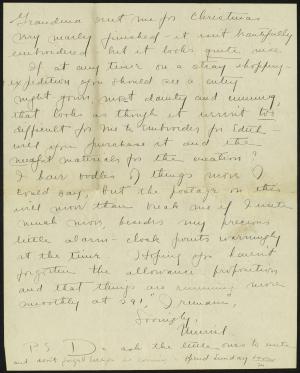 Grandma sent me for Christmas
very nearly finished - it isn't beautifully
embroidered - but it looks quite nice.
If at any time on a stray shopping-
expedition you should see a
night gown most dainty and cunning,
that looks as though it weren't too
difficult for me to embroider for Edith
will you purchase it and the
needful materials for the creation?
I have oodles of things more I
could say, but the postage on this
will more than break me if I write
much more, besides my precious
little alarm-clock points warningly
at the time. Hoping you haven't
forgotten the allowance proposition
and that things are running more
smoothly at 291, "I remain",
Lovingly,
Muriel.
P.S. Do ask the little ones to write
and don't forget
Sunday